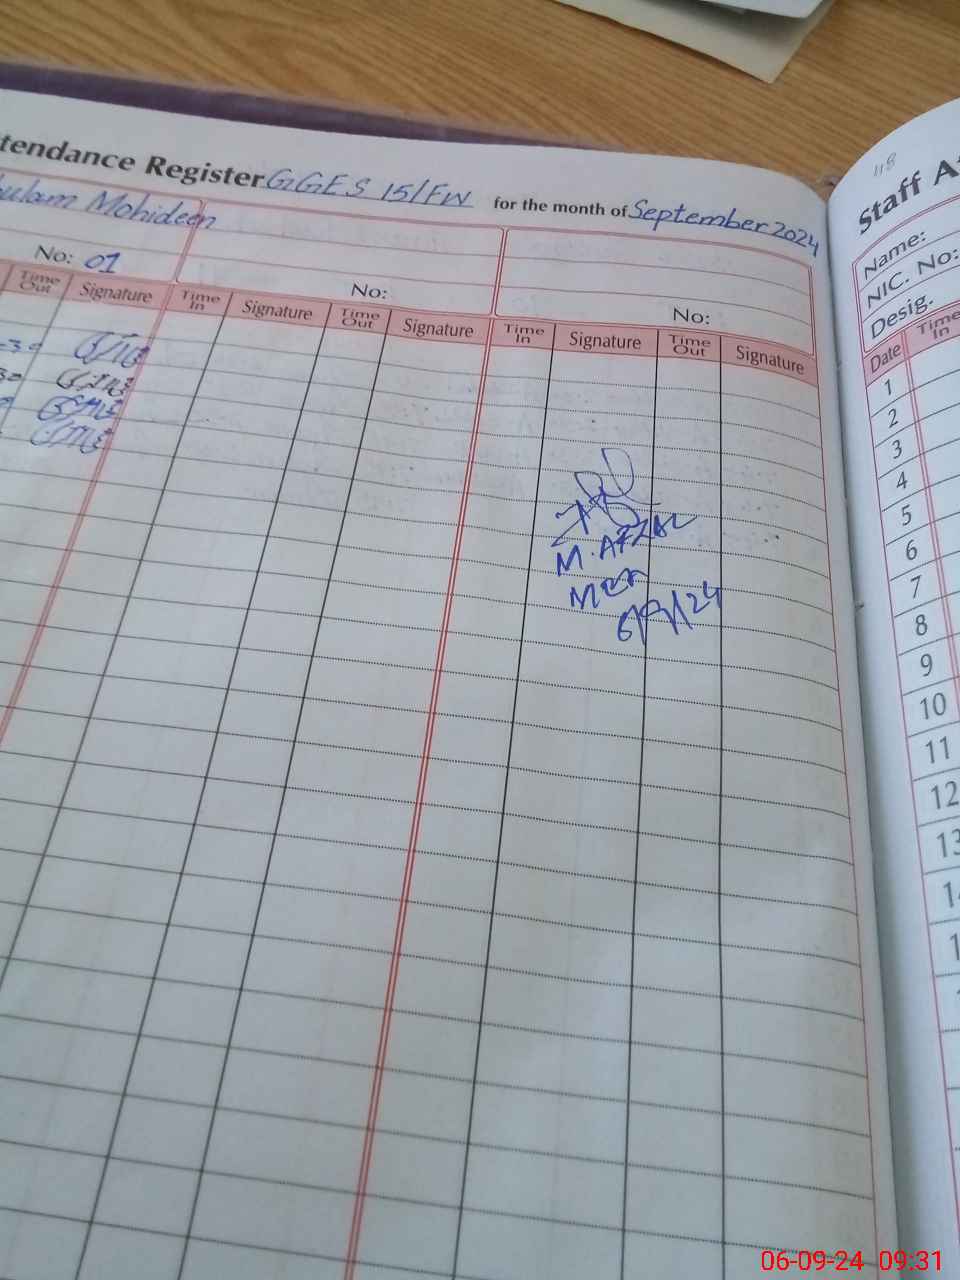 tendance Register GGES 15/FW for the month of September 2024
ulam Mohideen
No: 01 No: No:
Time Out Signature Time In Signature Time Out Signature Time In Signature Time Out Signature
-30
30
M. AFZAL
MEA
6/9/24
118
Staff A
Name:
NIC. No:
Desig.
Date Time In
1
2
3
4
5
6
7
8
9
10
11
12
13
06-09-24 09:31